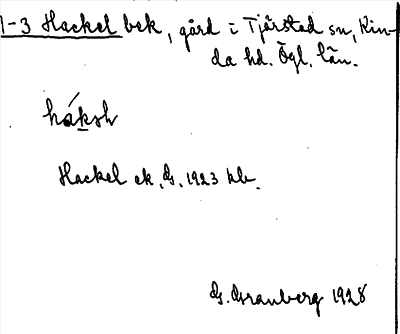 1-3 Hackel bek, gård i Tjärstad sn, Kin-
da hd. Ögl. län.
háksh
Hackel ek. G. 1923 kb.
G. Granberg 1928